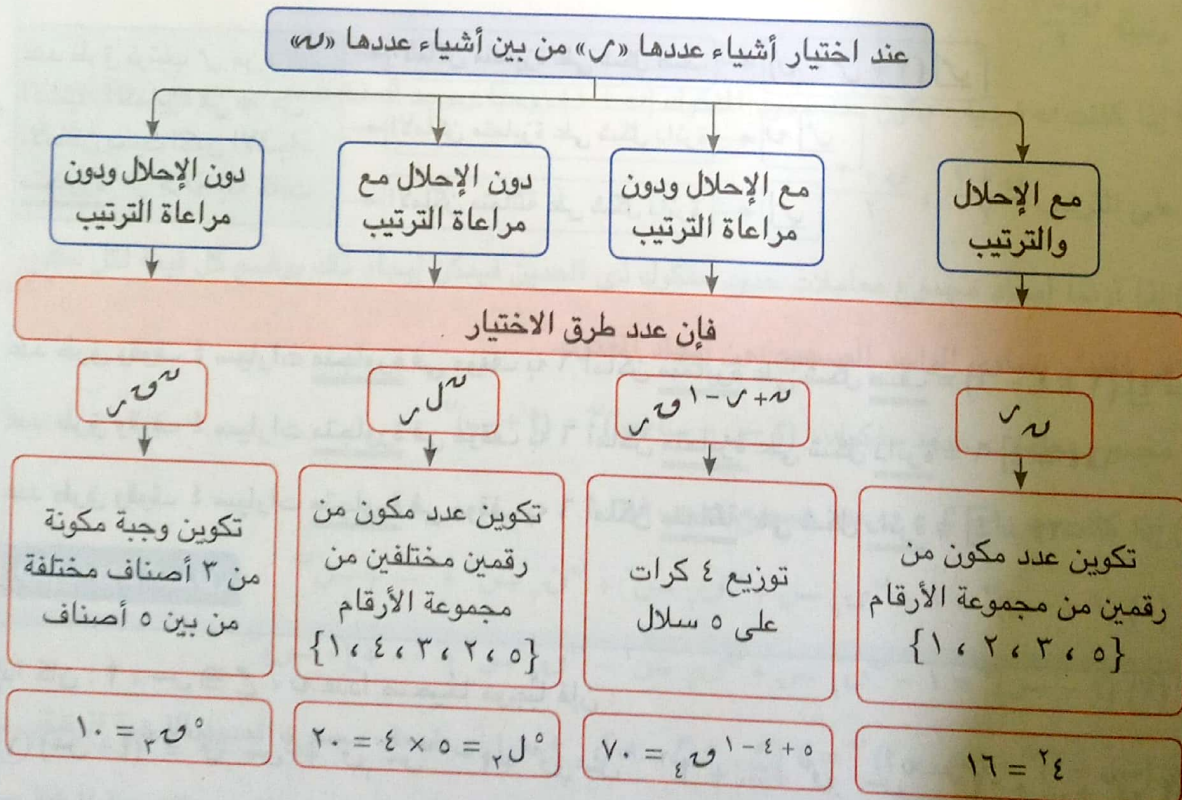 عند اختيار أشياء عددها «ر» من بين أشياء عددها «ن»
مع الإحلال
والترتيب
مع الإحلال ودون
مراعاة الترتيب
دون الإحلال مع
مراعاة الترتيب
دون الإحلال ودون
مراعاة الترتيب
فإن عدد طرق الاختيار
نʳ
ن+ر-١قر
نلر
نقر
تكوين عدد مكون من
رقمين من مجموعة الأرقام
{١ ، ٢ ، ٣ ، ٥}
توزيع ٤ كرات
على ٥ سلال
تكوين عدد مكون من
رقمين مختلفين من
مجموعة الأرقام
{١ ، ٤ ، ٣ ، ٢ ، ٥}
تكوين وجبة مكونة
من ٣ أصناف مختلفة
من بين ٥ أصناف
٤² = ١٦
٥+٤-١ق٤ = ٧٠
٥ل٢ = ٥ × ٤ = ٢٠
٥ق٣ = ١٠